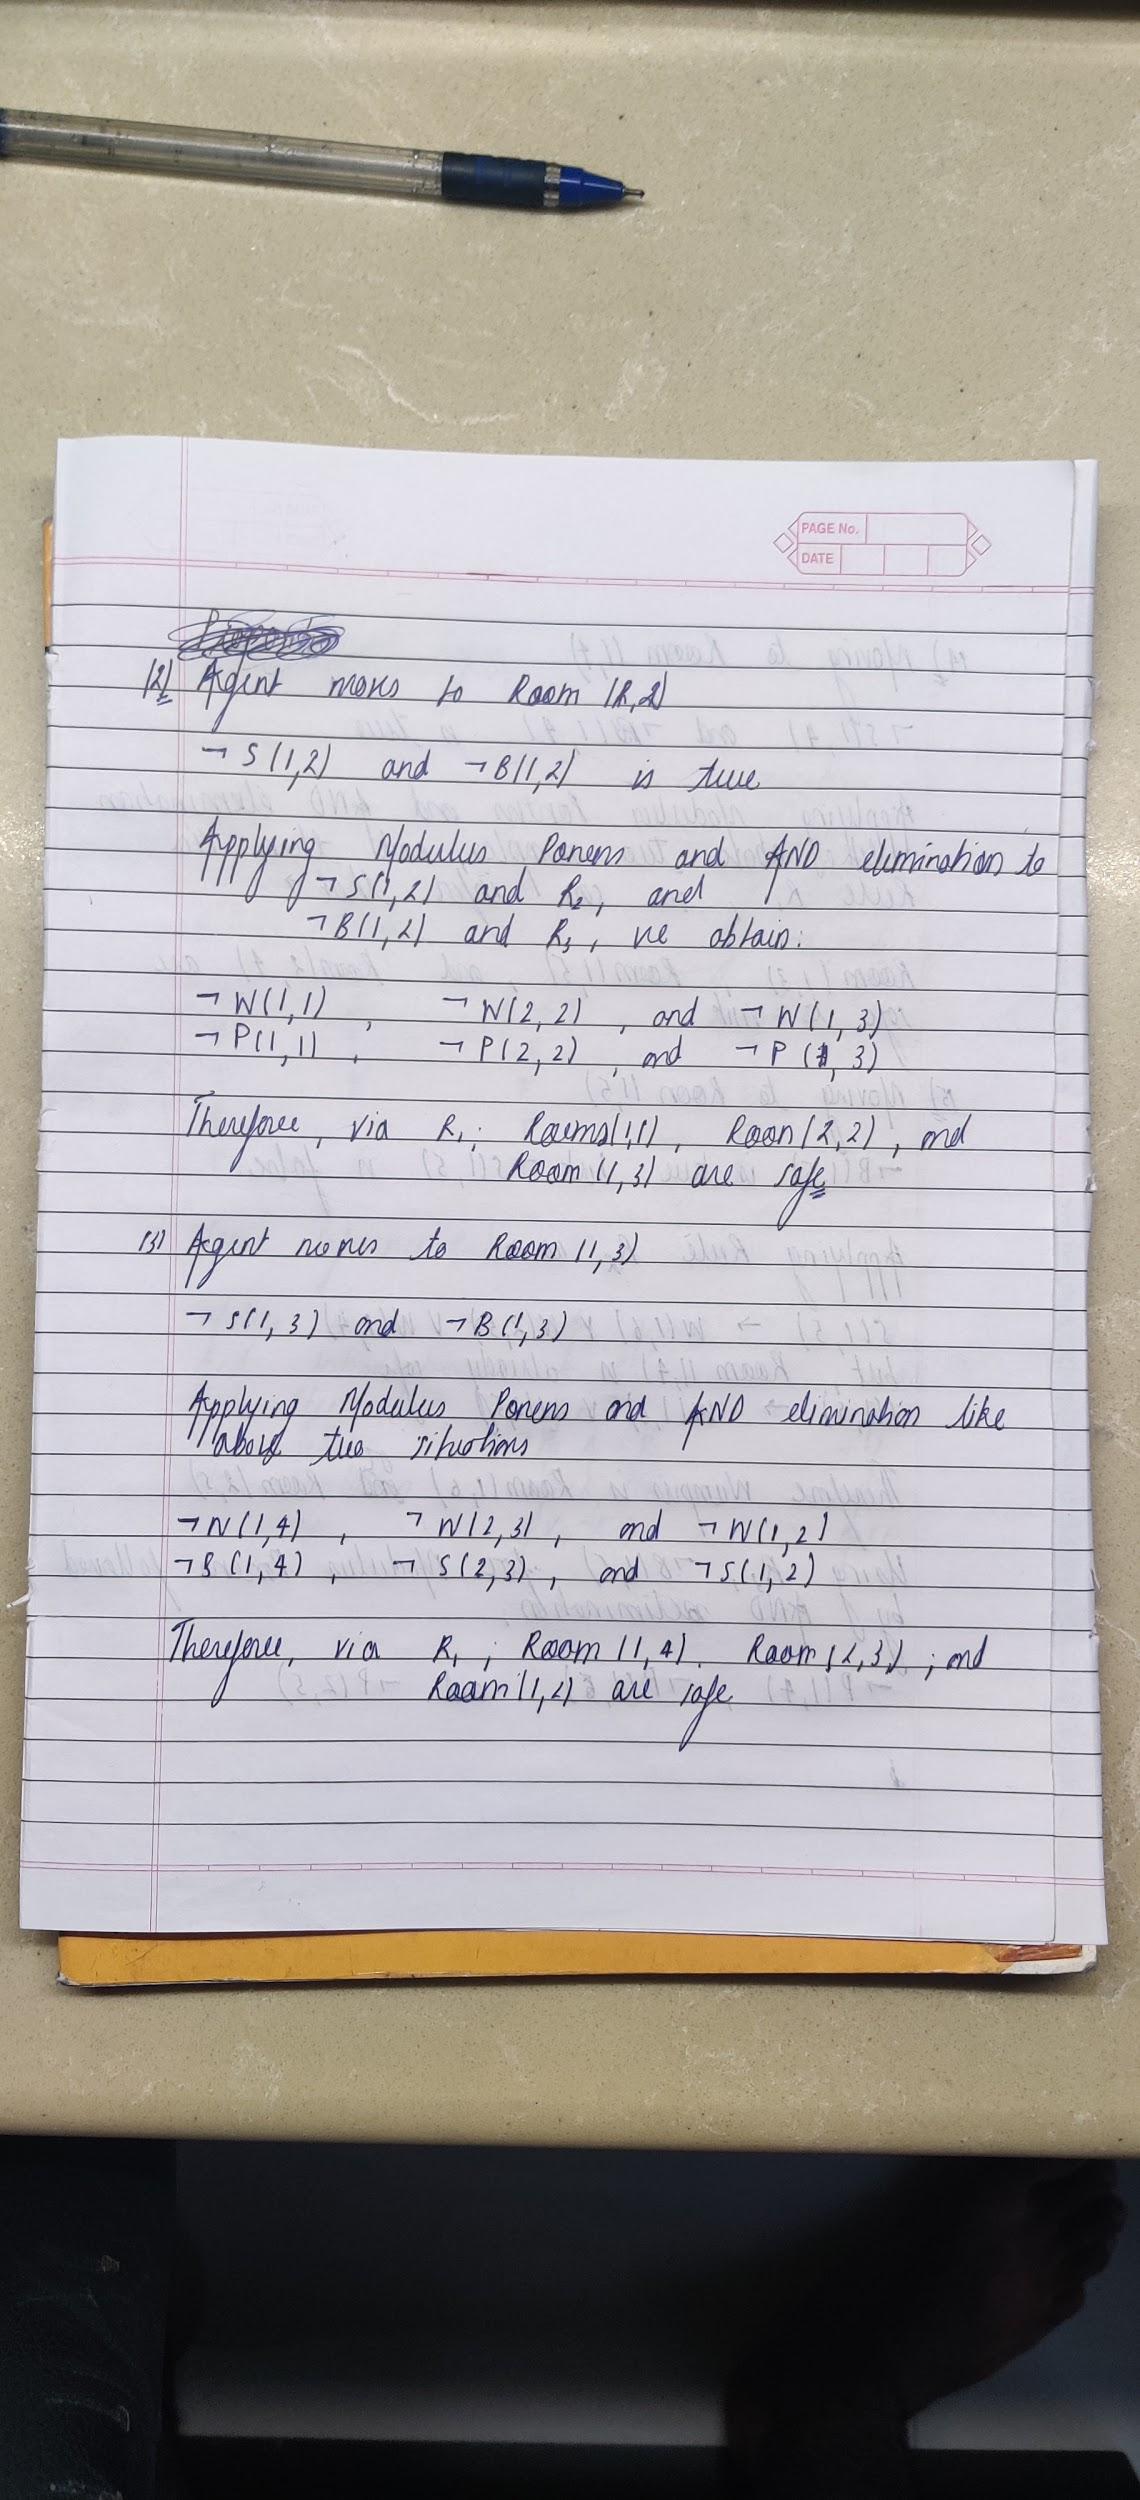 PAGE No.
DATE
(2) Agent moves to Room (1,2)
¬ S(1,2) and ¬B(1,2) is true
Applying Modulus Ponens and AND elimination to
¬S(1,2) and R₂, and
¬B(1,2) and R₃, we obtain:
¬W(1,1), ¬W(2,2), and ¬W(1,3)
¬P(1,1), ¬P(2,2), and ¬P(1,3)
Therefore, via R₁; Rooms(1,1), Room(2,2), and
Room (1,3) are safe
(3) Agent moves to Room (1,3)
¬S(1,3) and ¬B(1,3)
Applying Modulus Ponens and AND elimination like
above two situations
¬W(1,4), ¬W(2,3), and ¬W(1,2)
(1,4), ¬S(2,3), and ¬S(1,2)
Therefore, via R₁; Room (1,4). Room (2,3); and
Room (1,2) are safe